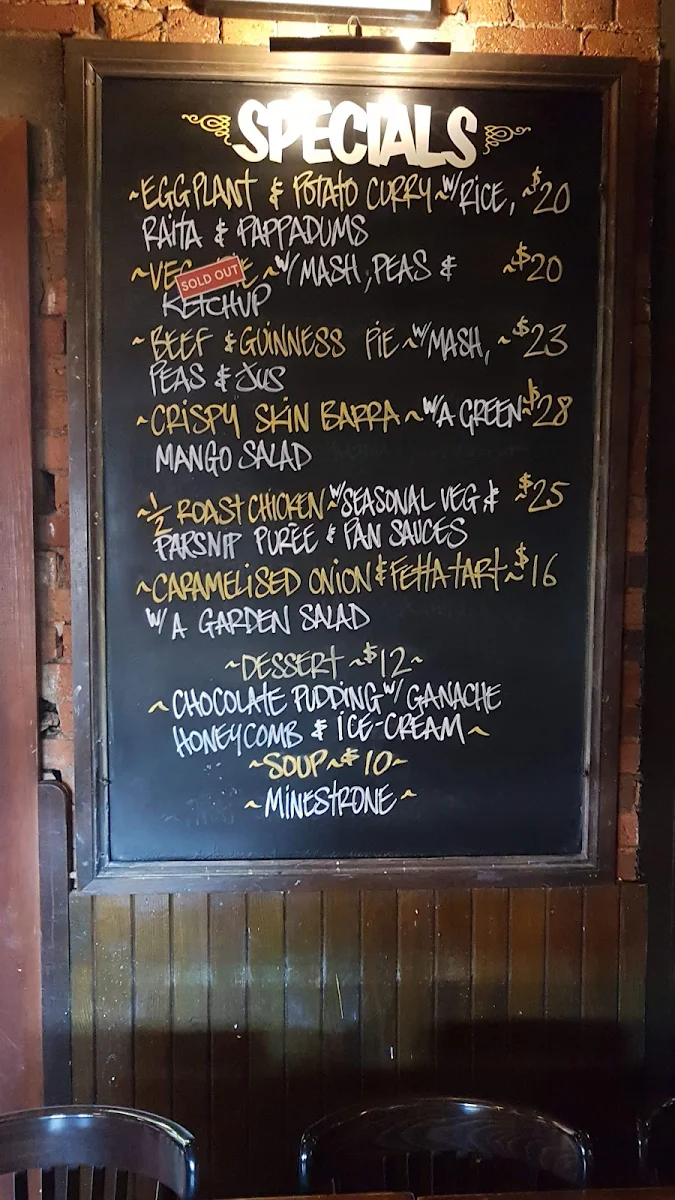 SPECIALS
~EGGPLANT & POTATO CURRY~W/RICE, ~$20
RAITA & PAPPADUMS
~VEG ~W/MASH, PEAS & ~$20
SOLD OUT
KETCHUP
~BEEF & GUINNESS PIE~W/MASH, ~$23
PEAS & JUS
~CRISPY SKIN BARRA~W/A GREEN~$28
MANGO SALAD
~1/2 ROAST CHICKEN~W/SEASONAL VEG & $25
PARSNIP PURÉE & PAN SAUCES
~CARAMELISED ONION & FETTA TART~$16
W/A GARDEN SALAD
~DESSERT~$12~
~CHOCOLATE PUDDING W/ GANACHE
HONEYCOMB & ICE-CREAM~
~SOUP~$10~
~MINESTRONE~